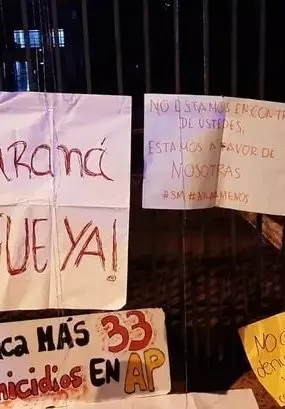 aRaná
UE YA!
NO ESTAMOS EN CONTR
DE USTEDES,
ESTAMOS A FAVOR DE
NOSOTRAS
#SM #NIUNAMENOS
ca MÁS 33
micidios EN AP
NO
denu